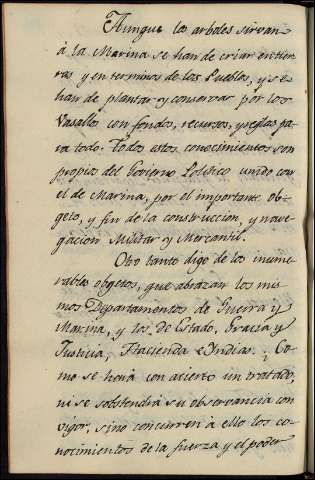 Aunque los arboles sirvan
á la Marina se han de criar en tier
ras y en terminos de los Pueblos, y se
han de plantar y conservar por los
Vasallos con fondos, recursos, y reglas pa
ra todo. Todos estos conocimientos son
propios del Govierno Politico unido con
el de Marina, por el important ob-
geto, y fin de la construccion, y nave-
gacion Militar y Mercantil.
Otro tanto digo de los inume
rables obgetos, que abrazan los mis
mos Departamentos de Guerra y
Marina, y los de Estado, Gracia y
Justicia, Hacienda é Yndias. ¿Co-
mo se hará con acierto un tratado,
ni se sobstendrá su observancia con
vigor, sino concurren á ello los co-
nocimientos de la fuerza y el poder